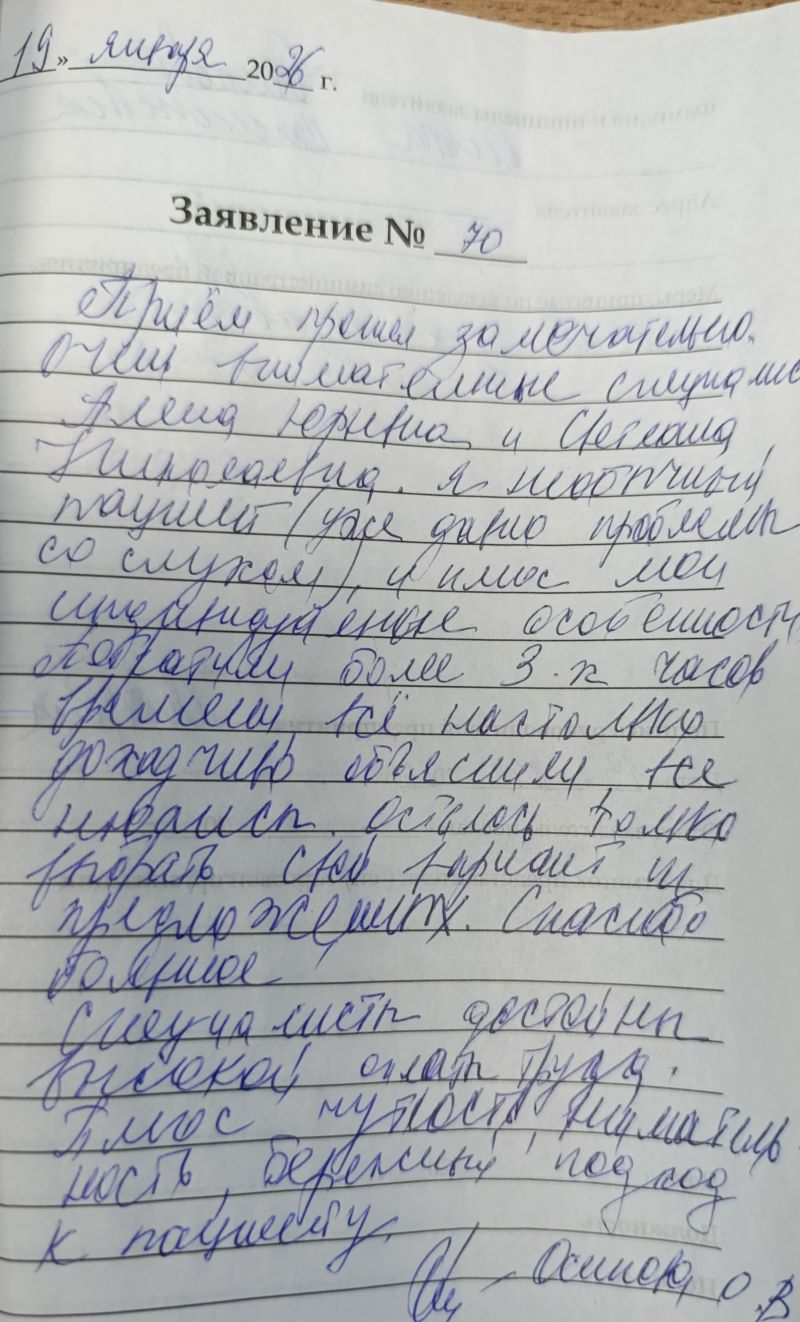 19» января 2026 г.
Заявление № 70
Приём прошел замечательно.
Очень внимательные специалис
Алена Юрьевна и Светлана
Николаевна. Я необычный
пациент (уже давно проблемы
со слухом), и плюс мои
индивидуальные особенности
Потратили более 3-х часов
времени, всё настолько
доходчиво объяснили, все
нюансы. Осталось только
выбрать свой вариант из
предложенных. Спасибо
большое
Специалисты достойны
высокой оплаты труда.
Плюс чуткость, вниматель
ность, бережный подход
к пациенту.
О.В